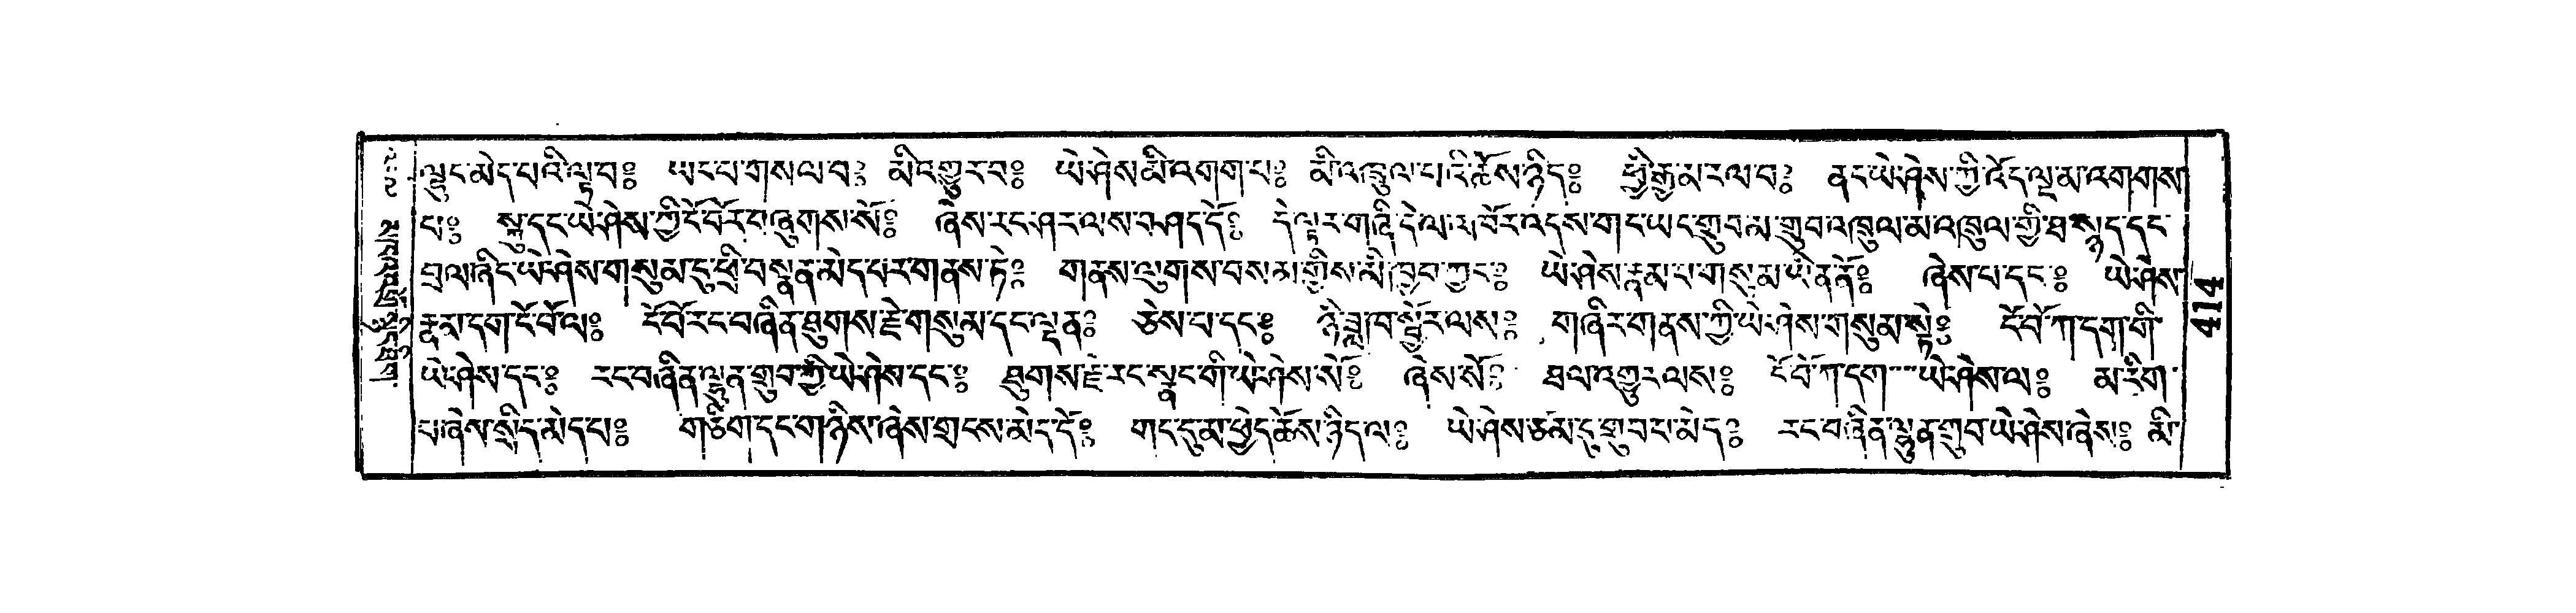 ལྷུང་མེད་པའི་ལྟ་བ༔ ཡང་པ་གསལ་བ༔ མི་འགྱུར་བ༔ ཡེ་ཤེས་མི་འགག་པ༔ མི་འཁྲུལ་པའི་ཆོས་ཉིད༔ ཕྱི་རྒྱ་མ་རལ་བ༔ ནང་ཡེ་ཤེས་ཀྱི་འོད་ལྔ་མ་འགགས
པ༔ སྐུ་དང་ཡེ་ཤེས་ཀྱི་ངོ་བོར་བཞུགས་སོ༔ ཞེས་རང་ཤར་ལས་བཤད་དོ༔ དེ་ལྟར་གཞི་དེ་ལ་འཁོར་འདས་གང་ཡང་གྲུབ་མ་གྲུབ་འཁྲུལ་མ་འཁྲུལ་གྱི་ཐ་སྙད་དང་
བྲལ་ཞིང་ཡེ་ཤེས་གསུམ་དུ་ཕྲི་བསྣན་མེད་པར་གནས་ཏེ༔ གནས་ལུགས་བསམ་གྱིས་མི་ཁྱབ་ཀྱང་༔ ཡེ་ཤེས་རྣམ་པ་གསུམ་ཡིན་ནོ༔ ཞེས་པ་དང་༔ ཡེ་ཤེས་
རྣམ་དག་ངོ་བོ་ལ༔ ངོ་བོ་རང་བཞིན་ཐུགས་རྗེ་གསུམ་དང་ལྡན༔ ཅེས་པ་དང་༔ ཉི་ཟླ་ཁ་སྦྱོར་ལས༔ གཞིར་གནས་ཀྱི་ཡེ་ཤེས་གསུམ་སྟེ༔ ངོ་བོ་ཀ་དག་གི་
ཡེ་ཤེས་དང་༔ རང་བཞིན་ལྷུན་གྲུབ་ཀྱི་ཡེ་ཤེས་དང་༔ ཐུགས་རྗེ་རང་སྣང་གི་ཡེ་ཤེས་སོ༔ ཞེས་སོ༔ ཐལ་འགྱུར་ལས༔ ངོ་བོ་ཀ་དག་ཡེ་ཤེས་ལ༔ མ་རིག་
པ་ཞེས་སྲིད་མེད་པ༔ གཅིག་དང་གཉིས་ཞེས་གྲངས་མེད་དོ༔ གདུ་མ་ཕྱེད་ཆོས་ཉིད་ལ༔ ཡེ་ཤེས་ཙམ་དུ་གྲུབ་པ་མེད༔ རང་བཞིན་ལྷུན་གྲུབ་ཡེ་ཤེས་ཞེས༔ མི་